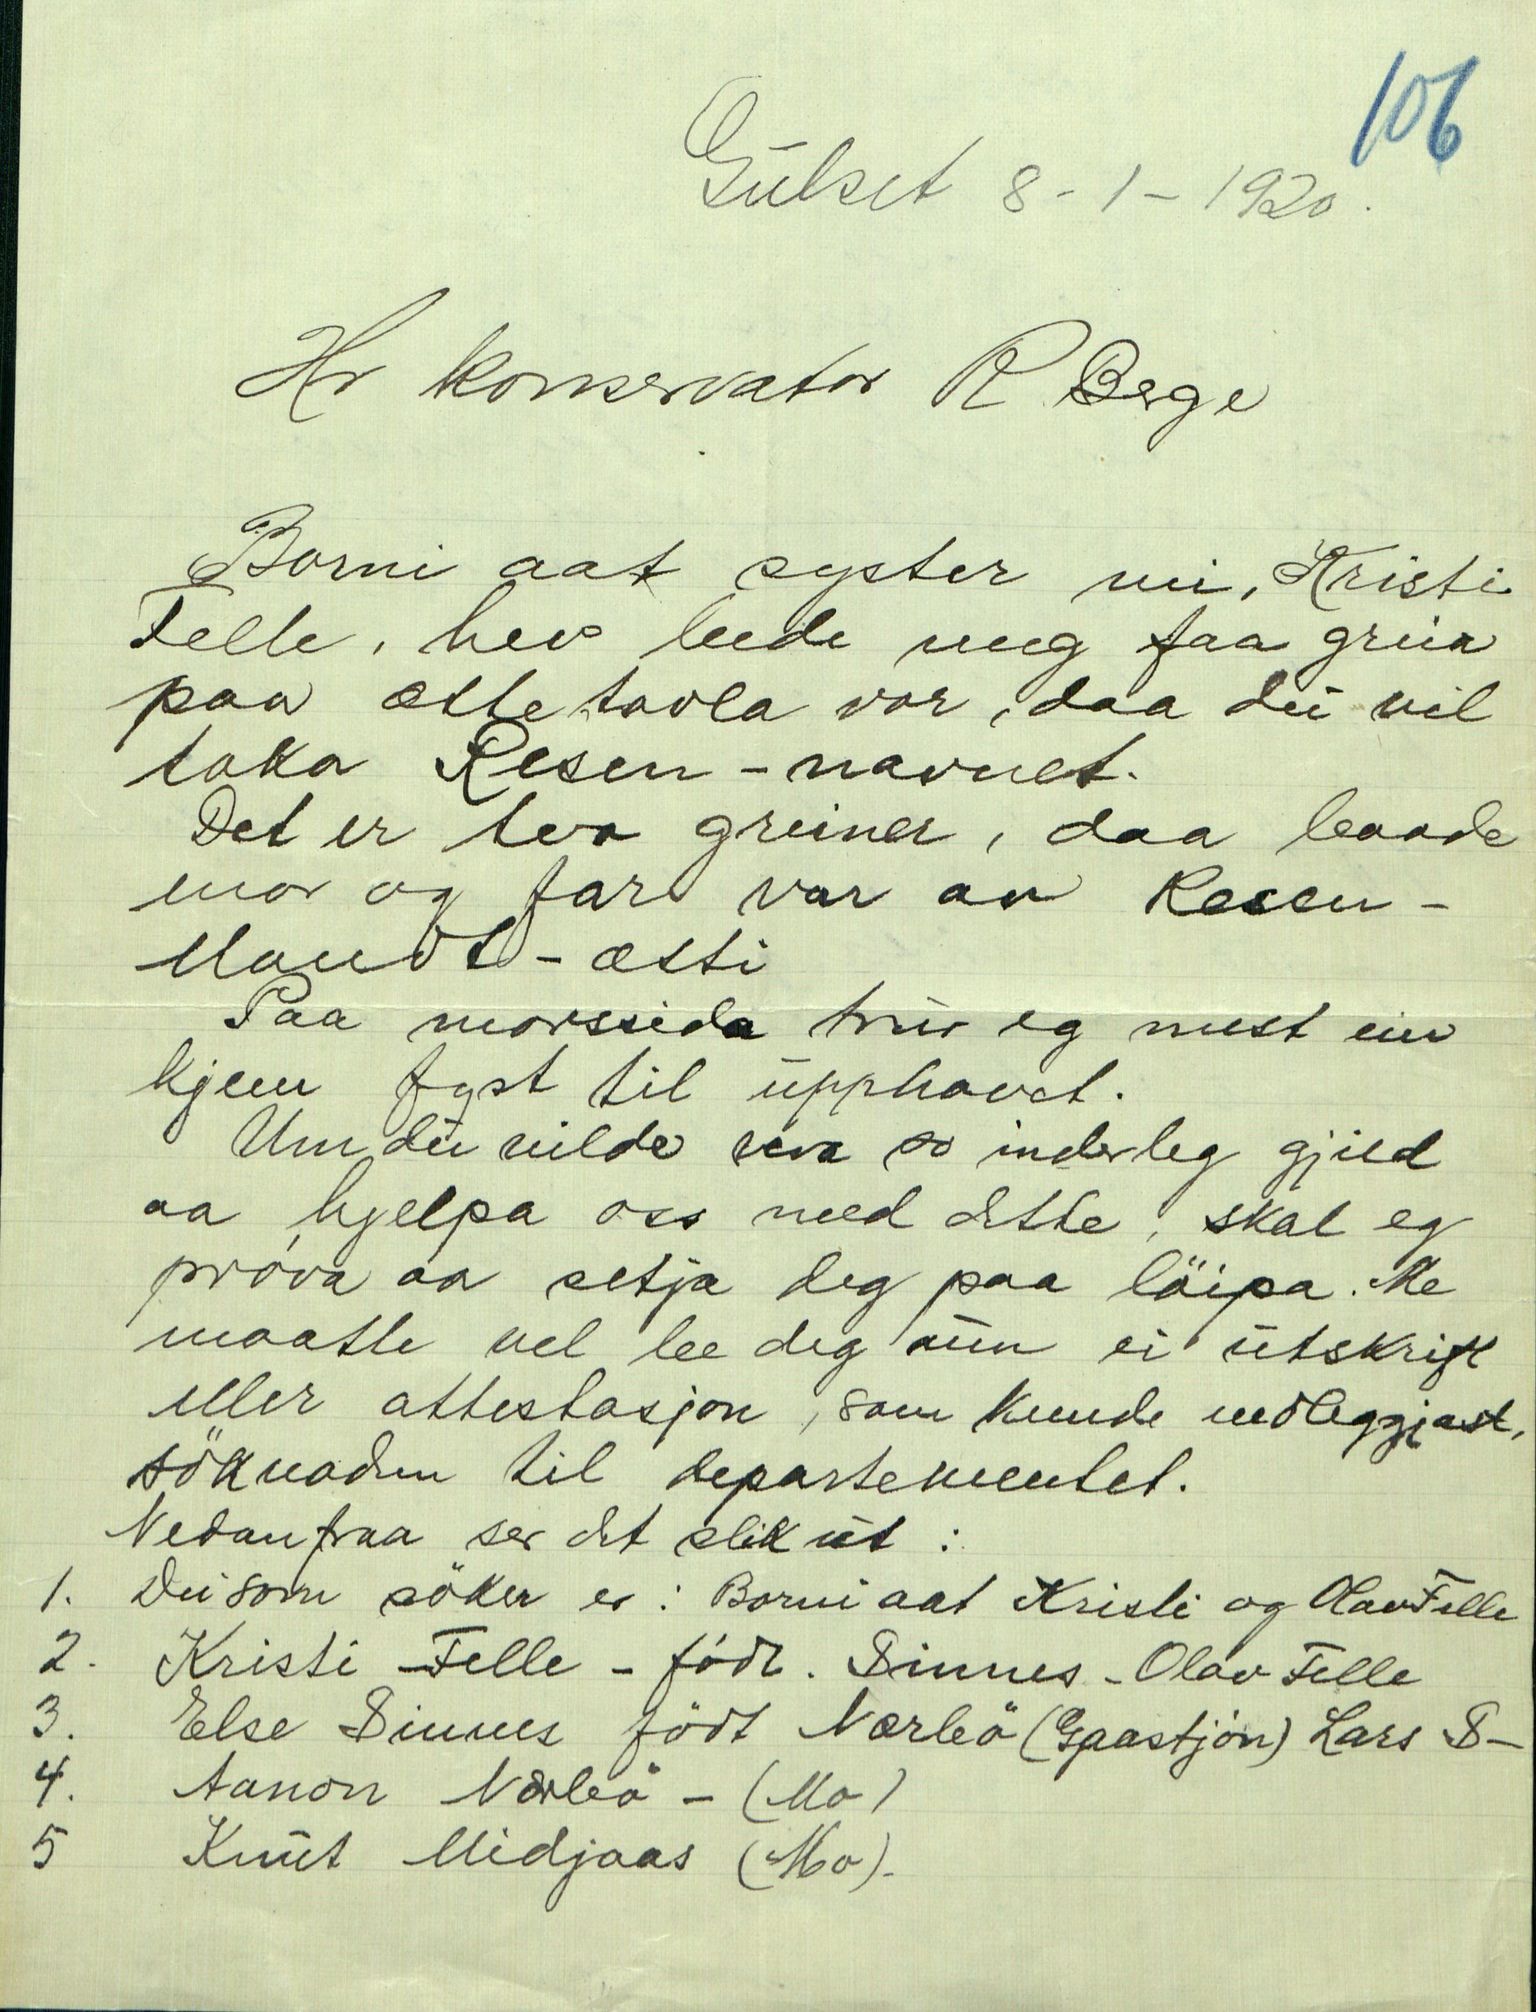 106
Gulset 8-1-1920.
Hr konservator R Berge
Borni aat syster mi, Kristi
Felle, hev bede meg faa greia
paa ættetavla vor, daa dei vil
taka Resen-navnet.
Det er tvo greiner, daa baade
mor og far var av Resen-
Mandt-ætti
Paa morssida trur eg mest ein
kjem fyst til upphavet.
Um du vilde vera so inderleg gjild
aa hjelpa oss med dette, skal eg
pröva aa setja deg paa löipa. Me
maatte vel be deg um ei utskrift
eller attestasjon, som kunde vedleggjast,
söknaden til departementet.
Nedanfraa ser det slik ut:
1. Dei som söker er: Borni aat Kristi og Olav Felle
2. Kristi Felle - född. Sinnes - Olav Felle
3. Else Sinnes födt Nærbö (Gaastjön) Lars S-
4. Aanon Nærbö - (Mo)
5 Knut Midjaas (Mo).